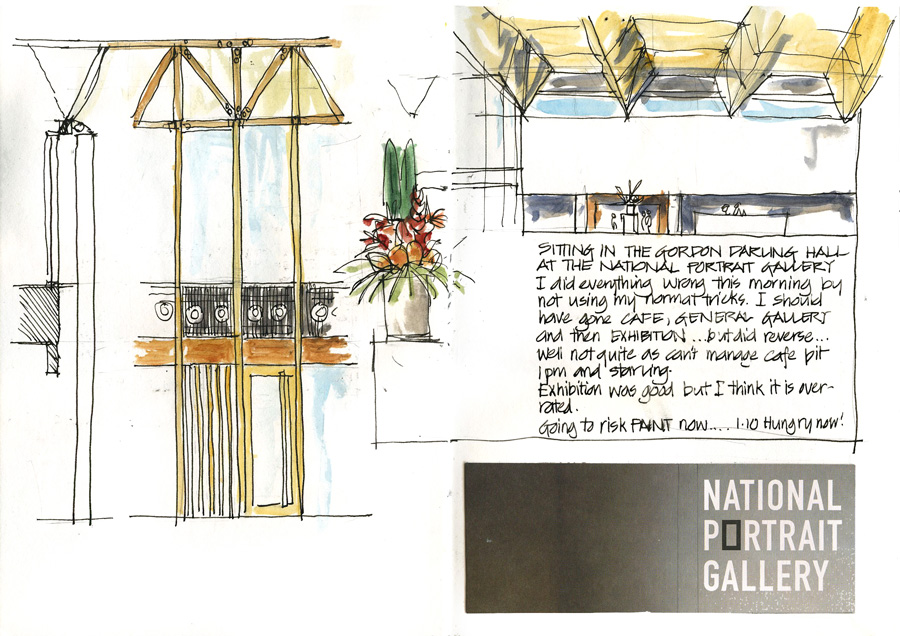 SITTING IN THE GORDON DARLING HALL
AT THE NATIONAL PORTRAIT GALLERY
I did everything wrong this morning by
not using my normal tricks. I should
have gone CAFE, GENERAL GALLERY
and then EXHIBITION ... but did reverse...
Well not quite as can't manage cafe bit
1pm and starving.
Exhibition was good but I think it is over-
rated.
Going to risk PAINT now.... 1.10 Hungry now!
NATIONAL
PORTRAIT
GALLERY